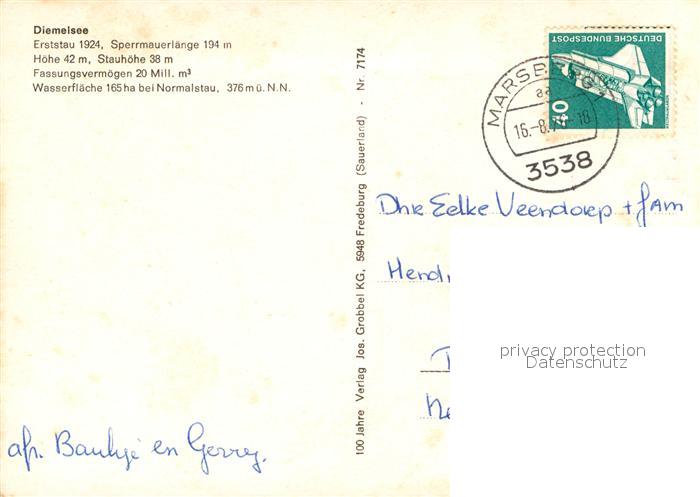 Diemelsee
Erststau 1924, Sperrmauerlänge 194 m
Höhe 42 m, Stauhöhe 38 m
Fassungsvermögen 20 Mill. m³
Wasserfläche 165 ha bei Normalstau, 376 m ü. N.N.
afz. Baukje en Gerry.
100 Jahre Verlag Jos. Grobbel KG, 5948 Fredeburg (Sauerland) - Nr. 7174
DEUTSCHE BUNDESPOST
40
16.-8.
18
3538
Dhr Eelke Veendorp + fam
privacy protection
Datenschutz